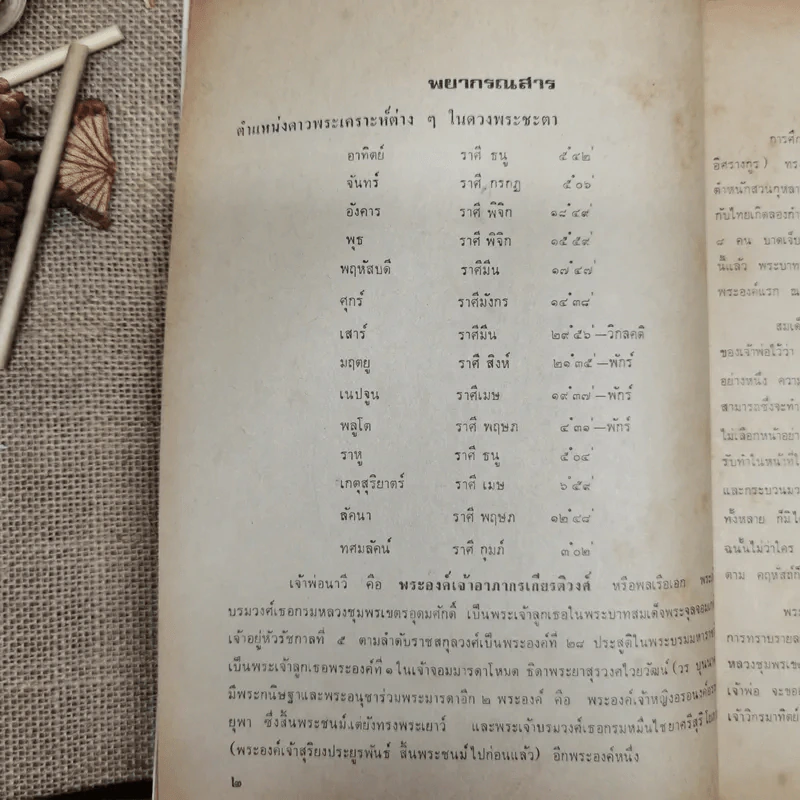 พยากรณสาร
ตำแหน่งดาวพระเคราะห์ต่าง ๆ ในดวงพระชะตา
อาทิตย์ ราศี ธนู ๕°๔๒'
จันทร์ ราศี กรกฎ ๕°๐๖'
อังคาร ราศี พิจิก ๑๘°๔๙'
พุธ ราศี พิจิก ๑๕°๕๙'
พฤหัสบดี ราศีมีน ๑๗°๔๗'
ศุกร์ ราศีมังกร ๑๔°๓๘'
เสาร์ ราศีมีน ๒๙°๕๖'—วิกลคติ
มฤตยู ราศี สิงห์ ๒๑°๓๕'—พักร์
เนปจูน ราศีเมษ ๑๙°๓๗'—พักร์
พลูโต ราศี พฤษภ ๔°๓๑'—พักร์
ราหู ราศี ธนู ๕°๐๔'
เกตุสุริยาตร์ ราศี เมษ ๖°๕๙'
ลัคนา ราศี พฤษภ ๑๒°๔๘'
ทศมลัคน์ ราศี กุมภ์ ๓°๐๒'
เจ้าพ่อนาวี คือ พระองค์เจ้าอาภากรเกียรติวงศ์ หรือพลเรือเอก
บรมวงศ์เธอกรมหลวงชุมพรเขตรอุดมศักดิ์ เป็นพระเจ้าลูกเธอในพระบาทสมเด็จพระจุลจอมเกล้า
เจ้าอยู่หัวรัชกาลที่ ๕ ตามลำดับราชสกุลวงศ์เป็นพระองค์ที่ ๒๘ ประสูติในพระบรมมหาราชวัง
เป็นพระเจ้าลูกเธอพระองค์ที่ ๑ ในเจ้าจอมมารดาโหมด ธิดาพระยาสุรวงศ์ไวยวัฒน์ (วร บุนนาค
มีพระกนิษฐาและพระอนุชาร่วมพระมารดาอีก ๒ พระองค์ คือ พระองค์เจ้าหญิงอรองค์อรรค
ยุพา ซึ่งสิ้นพระชนม์แต่ยังทรงพระเยาว์ และพระเจ้าบรมวงศ์เธอกรมหมื่นไชยาศรีสุริโยภาส
(พระองค์เจ้าสุริยงประยูรพันธ์ สิ้นพระชนม์ไปก่อนแล้ว) อีกพระองค์หนึ่ง
๒
การศึก
อิศรางกูร) ทร
ตำหนักสวนกุหลา
กับไทยเกิดลองกำ
๘ คน บาดเจ็บ
นี้แล้ว พระบาท
พระองค์แรก ณ
สมเด็
ของเจ้าพ่อไว้ว่า
อย่างหนึ่ง ความ
สามารถซึ่งจะทำ
ไม่เลือกหน้าอย่า
รับทำในหน้าที่ใ
และกระบวนมว
ทั้งหลาย ก็มิได้
ฉนั้นไม่ว่าใคร
ตาม คฤหัสถ์ก็
พระ
การทราบรายละ
หลวงชุมพรเข
เจ้าพ่อ จะขอ
เจ้าวิกรมาทิตย์